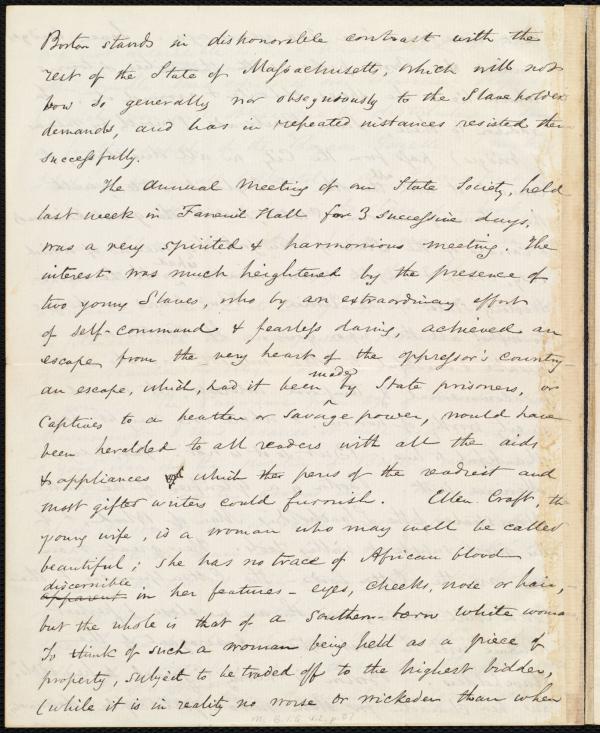 Boston stands in dishonorable contrast with the
rest of the State of Massachusetts, which will not
bow so generally nor obsequiously to the Slaveholders
demands, and has in repeated instances resisted them
successfully.
The Annual Meeting of our State Society, held
last week in Faneuil Hall for 3 successive days,
was a very spirited & harmonious meeting. The
interest was much heightened by the presence of
two young Slaves, who by an extraordinary effort
of self-command & fearless daring, achieved an
escape from the very heart of the oppressor's country -
made
an escape, which, had it been by State prisoners, or
Captives to a heathen or savage power, would have
been heralded to all readers with all the aids
& appliances which the pens of the readiest and
most gifted writers could furnish. Ellen Craft, the
young wife, is a woman who may well be called
beautiful; she has no trace of African blood
discernible
apparent in her features - eyes, cheeks, nose or hair,
but the whole is that of a Southern-born white woman.
To think of such a woman being held as a piece of
property, subject to be traded off to the highest bidder,
(while it is in reality no worse or wickeder than when